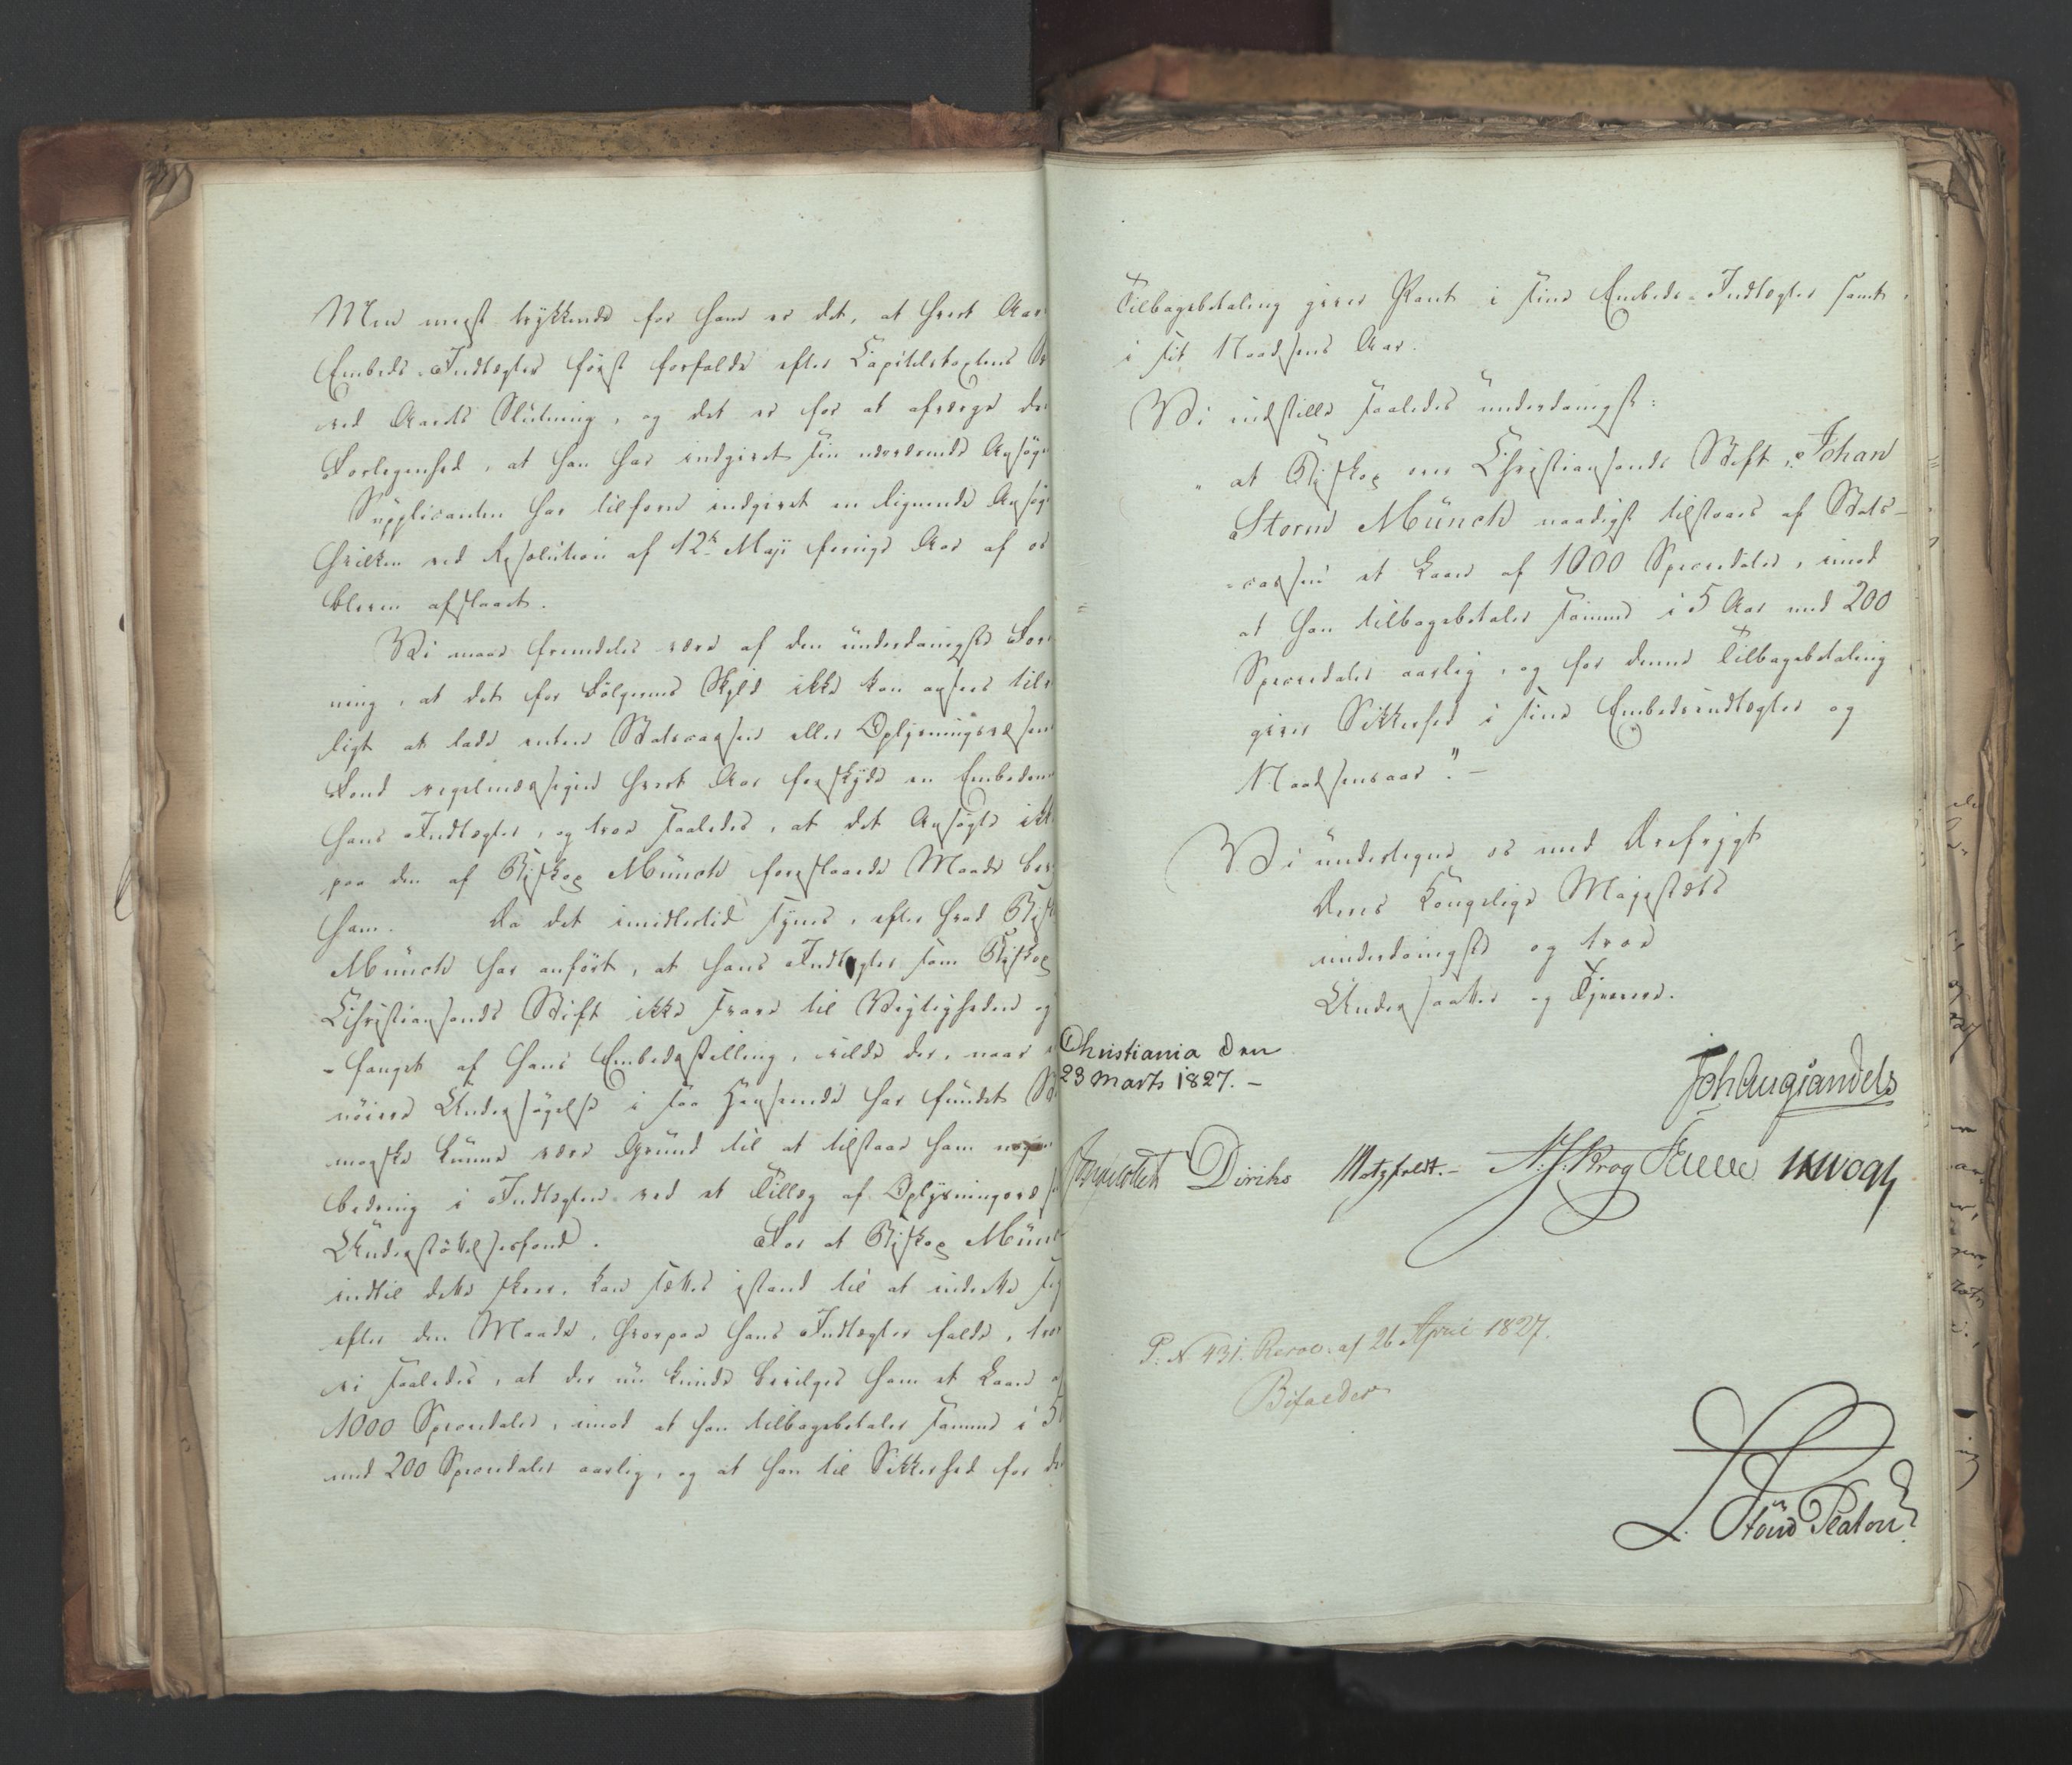 Men meest trykkende for ham er det, at hvert Aar
Embeds-Indtægter først forfalde efter Capitelstaxtens
ved Aarets Slutning, og det er for at afværge
Forlegenhed, at han har indgivet sin nærværende Ansøg
Supplicanten har tilforn indgivet en lignende Ansøg
hvilken ved Resolution af 12te Maji forrige Aar af os
bleven afslaaet.
Vi maae fremdeles være af den underdanigste For
ning, at det for Følgernes Skyld ikke kan ansees tilr
ligt at lade enten Statscassen eller Oplysningsvæsen
Fond regelmæssigen hvert Aar forskyde en Embedsm
hans Indtægter, og troe saaledes, at det Ansøgte ikk
paa den af Biskop Münch foreslaaede Maade bev
ham. Da det imidlertid synes, efter hvad Bisk
Münch har anført, at hans Indtægter som Biskop
Christiansands Stift ikke svare til Vigtigheden og
-fanget af hans Embedsstilling, vilde der, naar
nøiere Undersøgelse i saa Henseende har fundet St
maaske kunne være Grund til at tilstaae ham nogen
bedring i Indtægten ved et Tillæg af Oplysningsvæs
Understøttelsesfond. For at Biskop Münch
indtil dette skeer, kan sættes istand til at indrette sig
efter den Maade, hvorpaa hans Indtægter falde, troe
vi saaledes, at der nu kunde bevilges ham et Laan af
1000 Speciedaler, imod at han tilbagebetaler samme i 5
med 200 Speciedaler aarlig, og at han til Sikkerhed for de
Tilbagebetaling giver Pant i sine Embeds-Indtægter samt
i sit Naadsens Aar.
Vi indstille saaledes underdanigst:
"at Biskop over Christiansands Stift, Johan
Storm Münch naadigst tilstaaes af Stats-
-cassen et Laan af 1000 Speciedaler, imod
at han tilbagebetaler samme i 5 Aar med 200
Speciedaler aarlig, og for denne Tilbagebetaling
giver Sikkerhed i sine Embedsindtægter og
Naadsensaar." -
Vi undertegne os med Ærefrygt
Deres Kongelige Majestæts
underdanigste og troe
Undersaatter og Tjenere.
Christiania den
23 Marts 1827. -
Joh Aug Sandels
Diriks Motzfeldt. - N. J. Krog JHVogt
P. N 431. Resol: af 26 April 1827.
Bifaldes
Höus Platou